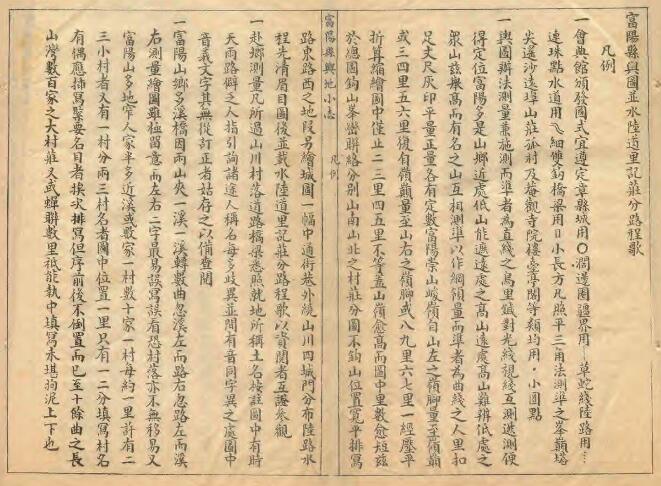 富陽縣輿圖並水陸道里記莊分路程歌
凡例
一會典館頒發圖式宜遵定章縣城用○澗邊圈疆界用—草蛇綫陸路用…
連珠點水道用〵細雙鈎橋梁用小長方凡照平三角法測準之峯巔塔
尖遙沙遠埠山莊孤村及菴觀寺院樓臺亭閣等類均用。小圓點
一輿圖辦法測量兼施測而準者為直綫之鳥里鍼對光綫視綫互測遞測便
得定位富陽多是山鄉近處低山能遮遠處之高山遠處高山難辨低處之
眾山茲據高而有名之山互相測準以作綱領量而準者為曲綫之人里扣
足丈尺灰印平量正量各有定數富陽崇山峻嶺自山左之嶺腳量至嶺巔
或三四里五六里復自嶺巔量至山右之嶺腳或八九里六七里一經壓平
折算縮繪圖中僅止二三里四五里不等蓋山嶺愈高而圖中里數愈短茲
於總圖鈎山峯巒聯絡分別山南山北之村莊分圖不鈎山位置寬平排寫
富陽縣輿地小志 凡例
路東路西之地段另繪城圖一幅中通街巷外繞山川四城門分布陸路水
程先清眉目圖後並載水陸道里記莊分路程歌以資閱者互證參觀
一赴鄉測量凡所過山川村落道路橋梁悉照就地所稱土名按註圖中有時
天雨路僻乏人指引詢諸途人稱名每多歧異並間有音同字異之處圖中
音義文字其無從訂正者姑存之以備查閱
一富陽山鄉多溪橋因兩山夾一溪一溪轉數曲忽溪左而路右忽路左而溪
右測量繪圖雖極留意而左右二字最易誤寫誤看恐村落亦不無移易又
富陽山多地窄人家半多近溪或數家一村數十家一村每約一里許有二
三小村者又有一村分兩三村名者圖中位置一里只有一二分填寫村名
有偶應插寫緊要名目者挨次排寫但序前後不倒置而已至十餘曲之長
山灣數百家之大村莊又或蟬聯數里祇能執中填寫未堪拘泥上下也